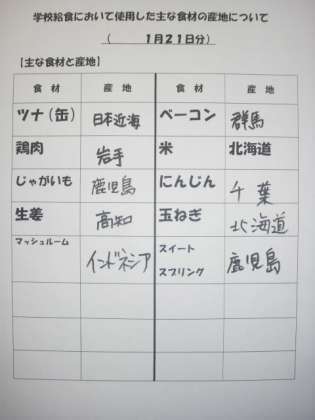 学校給食において使用した主な食材の産地について
(　1月21日分)
【主な食材と産地】
食材　産地　食材　産地
ツナ(缶)　日本近海　ベーコン　群馬
鶏肉　岩手　米　北海道
じゃがいも　鹿児島　にんじん　千葉
生姜　高知　玉ねぎ　北海道
マッシュルーム　インドネシア　スイート
スプリング　鹿児島